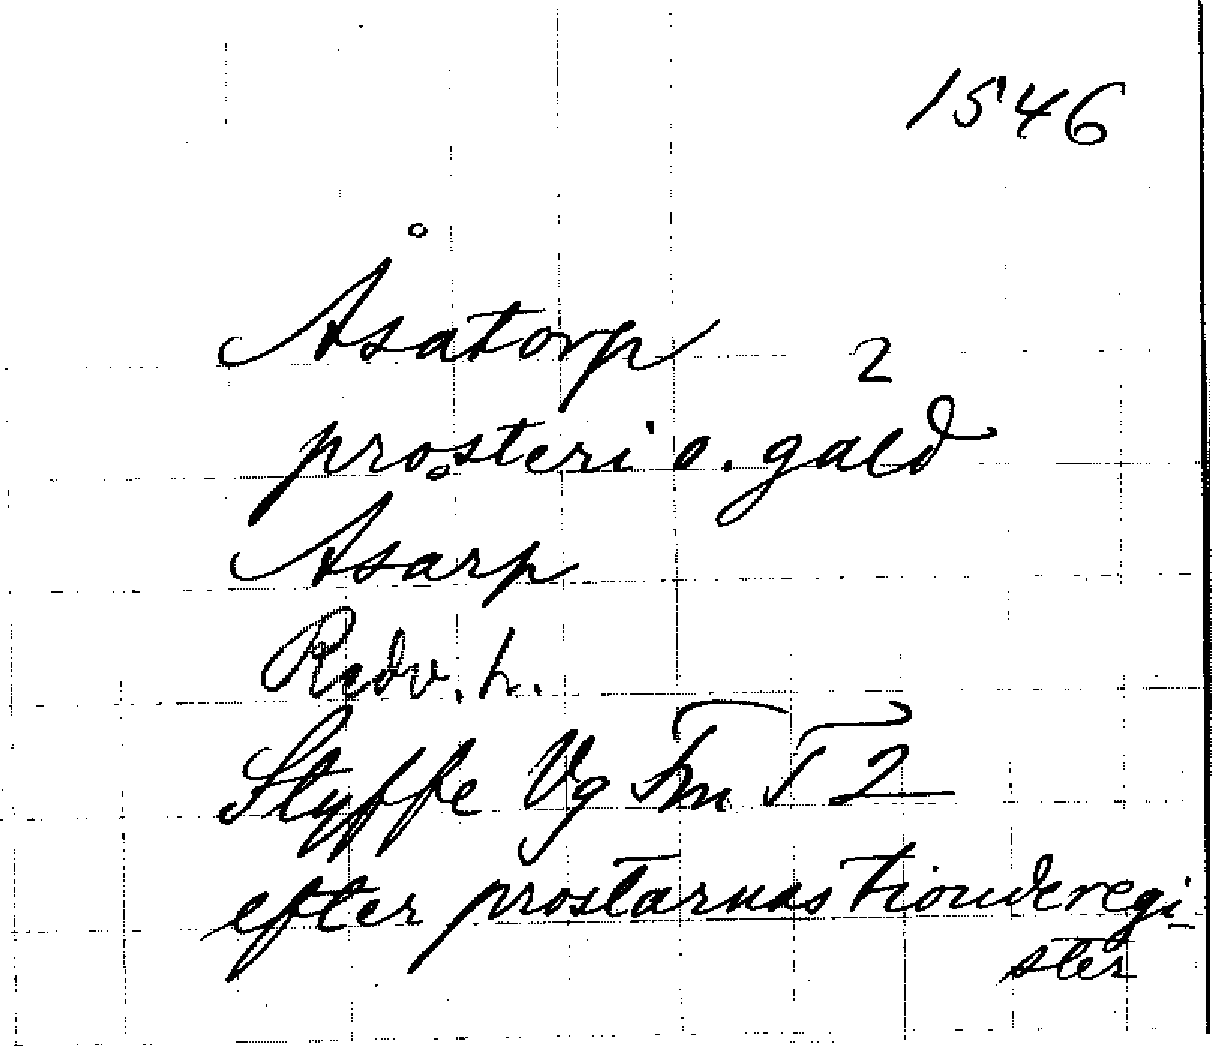 1546
Åsatorp 2
prosteri o. gäld
Åsarp
Redv. h.
Styffe Vg Fm T 2
efter prostarnas tionderegi-
ster